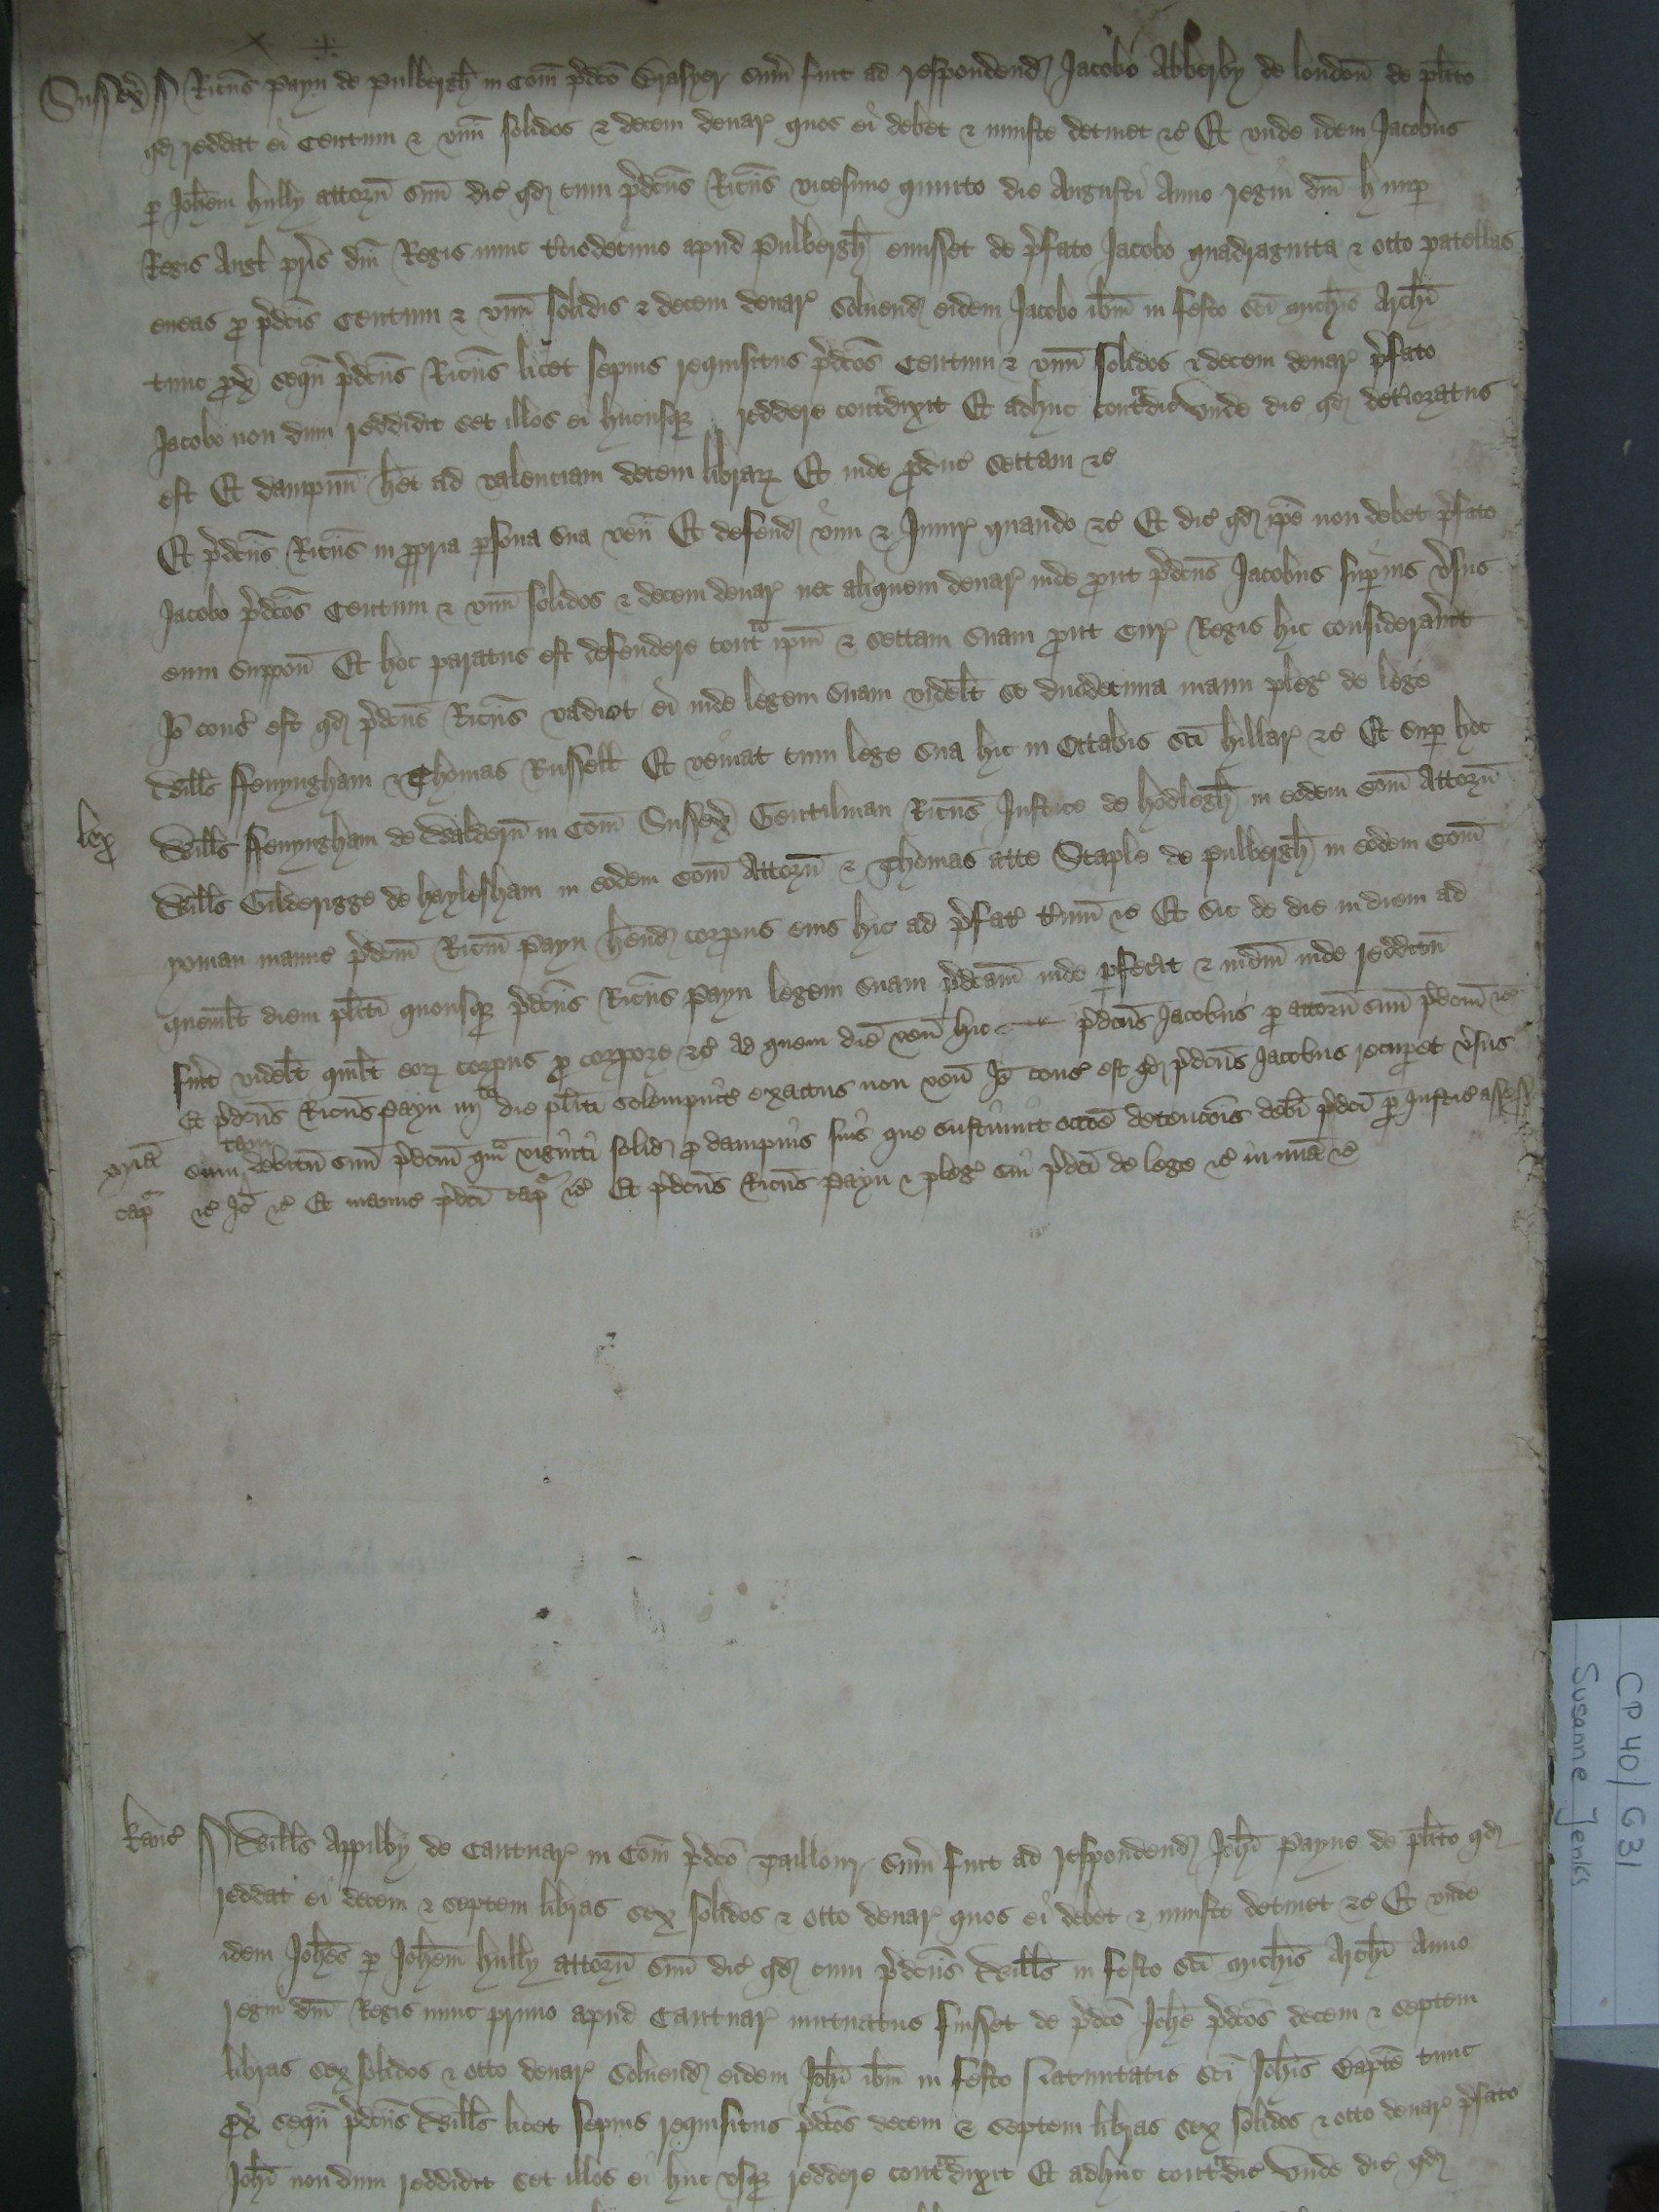 Sussex ss Ricus Payn de Pulbergh in Com pdco Brasyer sum fuit ad respondend Jacobo Abberby de london de plito
qd reddat ei Centum & viii solidos & decem denar quos ei debet & iniuste detinet &c Et unde idem Jacobus
p Johem hully attorn suu dic qd cum pdcus Ricus vicesimo quinto die Augusti Anno regni dni H nup
Regis Angl pris dni Regis nunc tciodecimo apud Pulbergh emisset de pfato Jacobo quadraginta & octo patellas
eneas p pdcis Centum & viii solidis & decem denar Soluend eidem Jacobo ibm in festo sci Michis Archi
tunc px sequ pdcus Ricus licet sepius requisitus pdcos Centum & viii solidos & decem denar pfato
Jacobo non dum reddidit set illos ei hucusq reddere contdixit Et adhuc contdic unde dic qd detioratus
est Et dampnu het ad valenciam decem librar Et inde pduc sectam &c
Et pdcus Ricus in ppria psona sua ven Et defend vim & Iniur quando &c Et dic qd ipe non debet pfato
Jacobo pdcos Centum & viii solidos & decem denar nec aliquem denar inde put pdcus Jacobus supius vsus
eum suppon Et hoc paratus est defendere contra ipm & sectam suam put Cur Regis hic considerauit
Jo cons est qd pdcus Ricus vadiet ei inde legem suam videlt se duodecima manu pleg de lege
Wills ffenyngham & Thomas Russell Et veniat cum lege sua hic in Octabis sci hillar &c Et sup hoc
lex Wills ffenyngham de Waldern in Com Sussex Gentilman Ricus Justice de hodlegh in eodem Com Attorn
Wills Gilderigge de haylesham in eodem Com Attorn & Thomas atte Staple de Pulbergh in eodem Com
yoman manuc pdcm Ricm Payn hend corpus eius hic ad pfat tmin &c Et sic de die in diem ad
quemlt diem pliti quousq pdcus Ricus Payn legem suam pdcam inde pfecit & iudm inde redditu
fuit videlt quilt eor corpus p corpore &c ad quem die ven hic pdcus Jacobus p attorn suu pdcm &c
Et pdcus Ricus Payn iiijto die pliti solempnit exactus non ven Jo cons est qd pdcus Jacobus recupet vsus
mia eum tam debitu suu pdcm qm viginti solid p dampnis suis que sustinuit occoe detencois debi pdci p Justic assess
cap &c Jo &c Et manuc pdci cap &c Et pdcus Ricus Payn & pleg sui pdci de lege &c in mia &c
Kanc ss Wills Appilby de Cantuar in Com pdco Taillour sum fuit ad respondend Johi Payne de plito qd
reddat ei decem & septem libras sex solidos & octo denar quos ei debet & iniuste detinet &c Et unde
idem Johes p Johem hully attorn suu dic qd cum pdcus Wills in festo sci Michis Archi Anno
regni dni Regis nunc primo apud Cantuar mutuatus fuisset de pdco Johe pdcos decem & septem
libras sex solidos & octo denar Soluend eidem Johi ibm in festo Natiuitatis sci Johis Bapte tunc
px sequ pdcus Wills licet sepius requisitus pdcos decem & septem libras sex solidos & octo denar pfato
Johi non dum reddidit set illos ei huc usq reddere contradixit Et adhuc contradic Unde dic qd
CP 40/631
Susanne Jenks